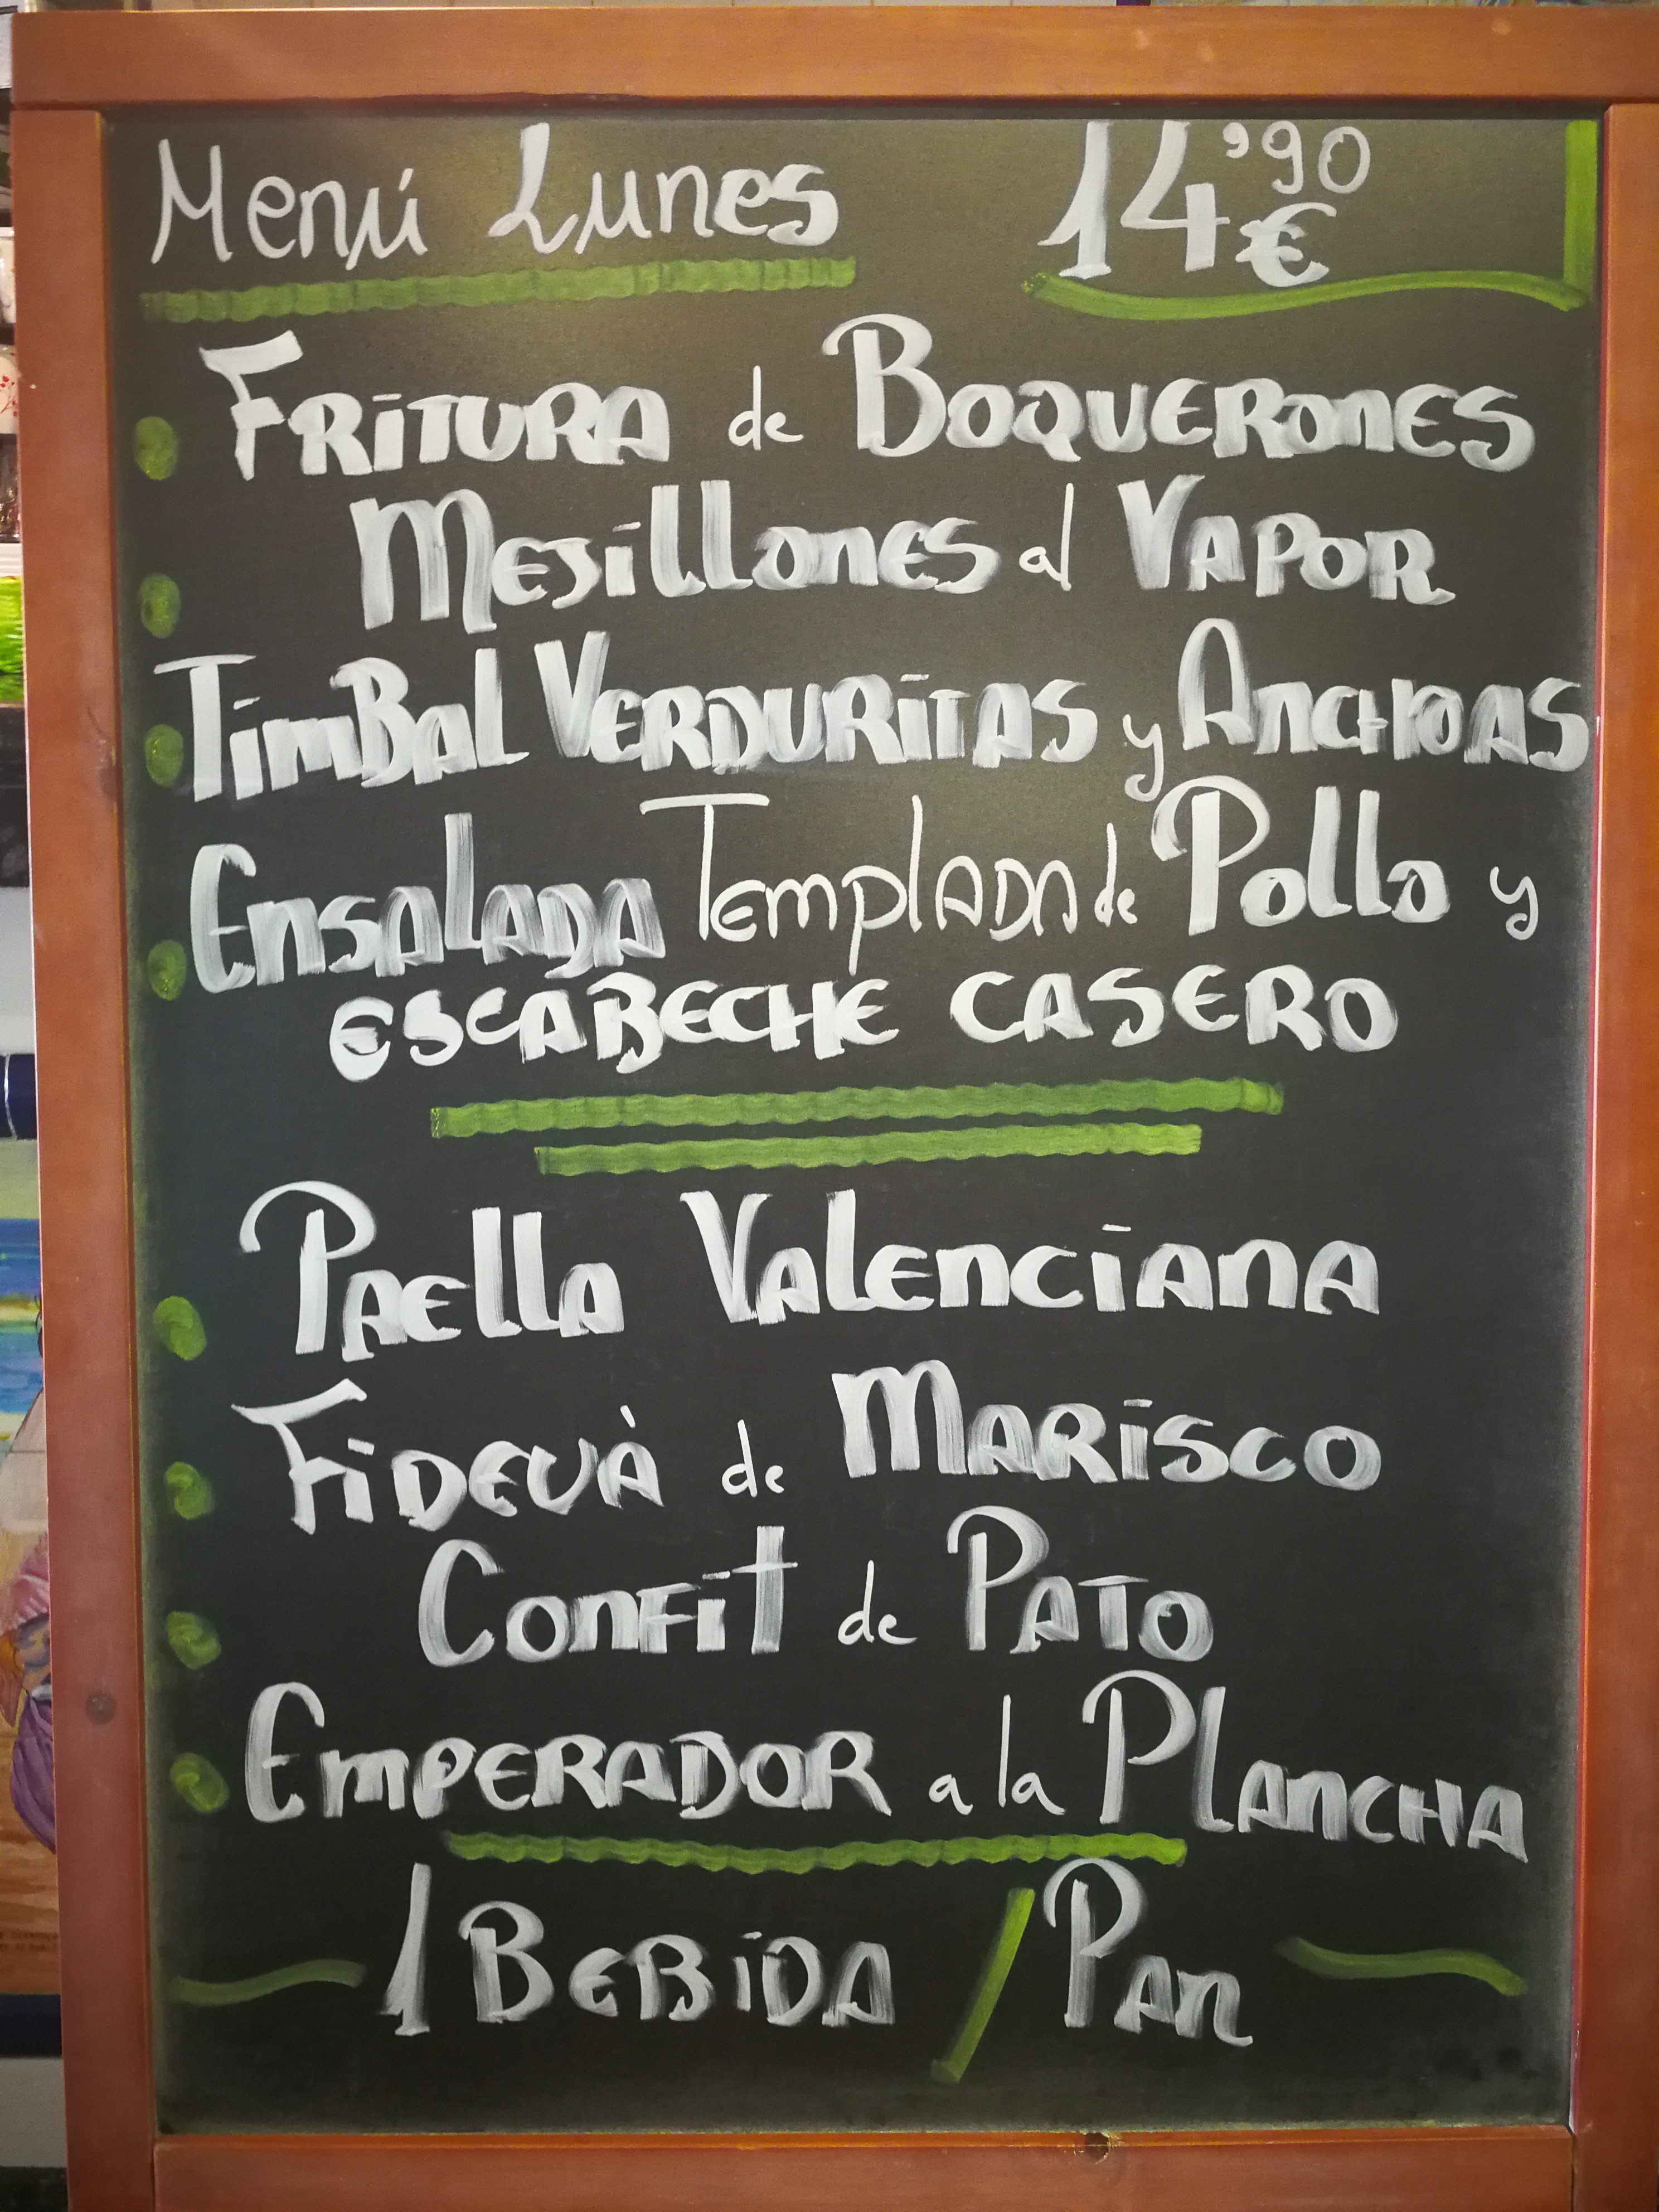 Menú Lunes 14'90 €
Fritura de Boquerones
Mejillones al Vapor
Timbal Verduritas y Anchoas
Ensalada Templada de Pollo y
escabeche casero
Paella Valenciana
Fideuà de Marisco
Confit de Pato
Emperador a la Plancha
1 Bebida / Pan